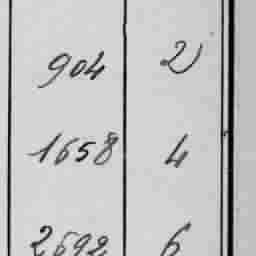 904 2
1658 4
2692 6